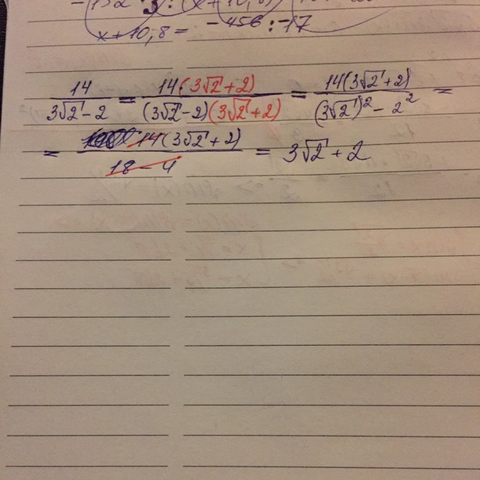 x+10,8= -456:-17
14/(3√2-2) = 14·(3√2+2)/((3√2-2)(3√2+2)) = 14(3√2+2)/((3√2)²-2²) =
= 14(3√2+2)/(18-4) = 3√2+2